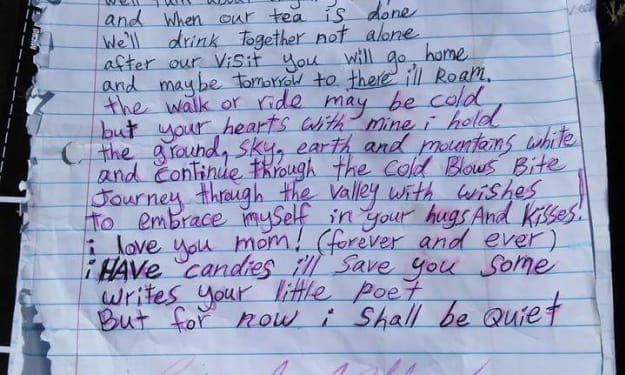 and when our tea is done
We'll drink together not alone
after our Visit you will go home
and maybe tomorrow to there i'll Roam.
the walk or ride may be cold
but your hearts with mine i hold
the ground, sky, earth and mountains white
and continue through the cold Blows Bite
Journey through the valley with wishes
to embrace myself in your hugs And Kisses!
i love you mom! (forever and ever)
i HAVe candies i'll Save you Some
writes your little poet
But for now i Shall be Quiet